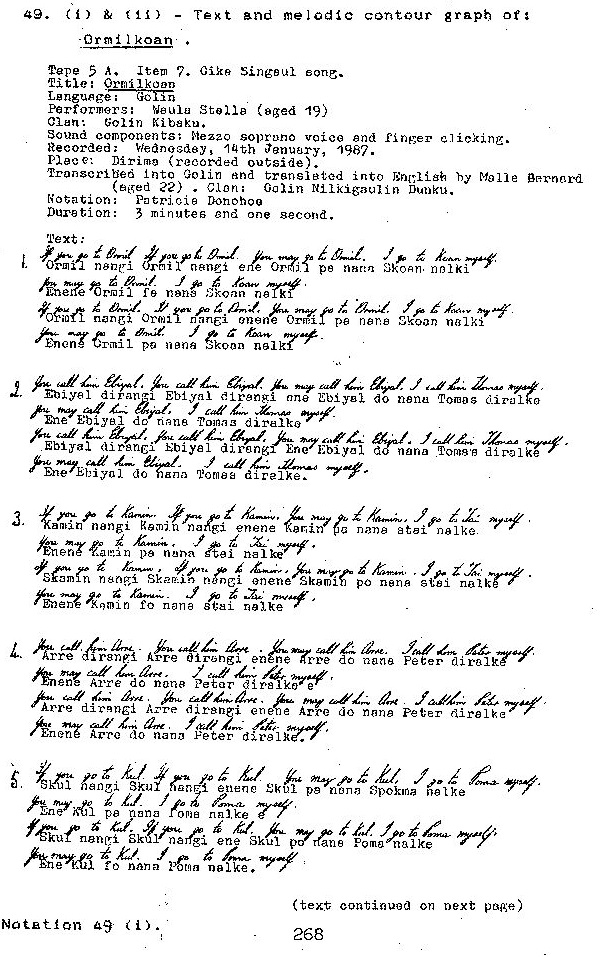 49. (i) & (ii) - Text and melodic contour graph of:
Ormilkoan .
Tape 5 A. Item 7. Gika Singaul song.
Title: Ormilkoan
Language: Golin
Performers: Waula Stella (aged 19)
Clan: Golin Kibaku.
Sound components: Mezzo soprano voice and finger clicking.
Recorded: Wednesday, 14th January, 1987.
Place: Dirima (recorded outside).
Transcribed into Golin and translated into English by Malle Bernard
(aged 22) . Clan: Golin Nilkigaulin Dunku.
Notation: Patricia Donohoe
Duration: 3 minutes and one second.
Text:
If you go to Ormil If you go to Ormil. You may go to Ormil. I go to Koan myself.
1. Ormil nangi Ormil nangi ene Ormil pa nana Skoan nalki
You may go to Ormil. I go to Koan myself.
Enene Ormil fe nana Skoan nalki
If you go to Ormil. If you go to Ormil. You may go to Ormil. I go to Koan myself.
Ormil nangi Ormil nangi enene Ormil pa nana Skoan nalki
You may go to Ormil. I go to Koan myself.
Enene Ormil pa nana Skoan nalki
You call him Ebiyal. You call him Ebiyal. You may call him Ebiyal. I call him Thomas myself.
2. Ebiyal dirangi Ebiyal dirangi ene Ebiyal do nana Tomas diralke
You may call him Ebiyal. I call him Thomas myself.
Ene Ebiyal do nana Tomas diralke
You call him Ebiyal. You call him Ebiyal. You may call him Ebiyal. I call him Thomas myself.
Ebiyal dirangi Ebiyal dirangi Ene Ebiyal do nana Tomas diralke
You may call him Ebiyal. I call him Thomas myself.
Ene Ebiyal do nana Tomas diralke.
If you go to Kamin. If you go to Kamin. You may go to Kamin. I go to Tai myself.
3. Kamin nangi Kamin nangi enene Kamin pa nana stai nalke.
You may go to Kamin. I go to Tai myself.
Enene Kamin pa nana stai nalke
If you go to Kamin. If you go to Kamin. You may go to Kamin. I go to Tai myself.
Skamin nangi Skamin nangi enene Skamin po nana stai nalke
You may go to Kamin. I go to Tai myself.
Enene Kamin fo nana stai nalke
You call him Arre. You call him Arre. You may call him Arre. I call him Peter myself.
4. Arre dirangi Arre dirangi enene Arre do nana Peter diralke
You may call him Arre. I call him Peter myself.
Enene Arre do nana Peter diralke e
You call him Arre. You call him Arre. You may call him Arre. I call him Peter myself.
Arre dirangi Arre dirangi enene Arre do nana Peter diralke
You may call him Arre. I call him Peter myself.
Enene Arre do nana Peter diralke.
If you go to Kul. If you go to Kul. You may go to Kul. I go to Poma myself.
5. Skul nangi Skul nangi enene Skul pa nana Spokma nalke
You may go to Kul. I go to Poma myself.
Ene Kul pa nana Poma nalke e
If you go to Kul. If you go to Kul. You may go to Kul. I go to Poma myself.
Skul nangi Skul nangi ene Skul po nana Poma nalke
You may go to Kul. I go to Poma myself
Ene Kul fo nana Poma nalke.
(text continued on next page)
Notation 49 (i).
268